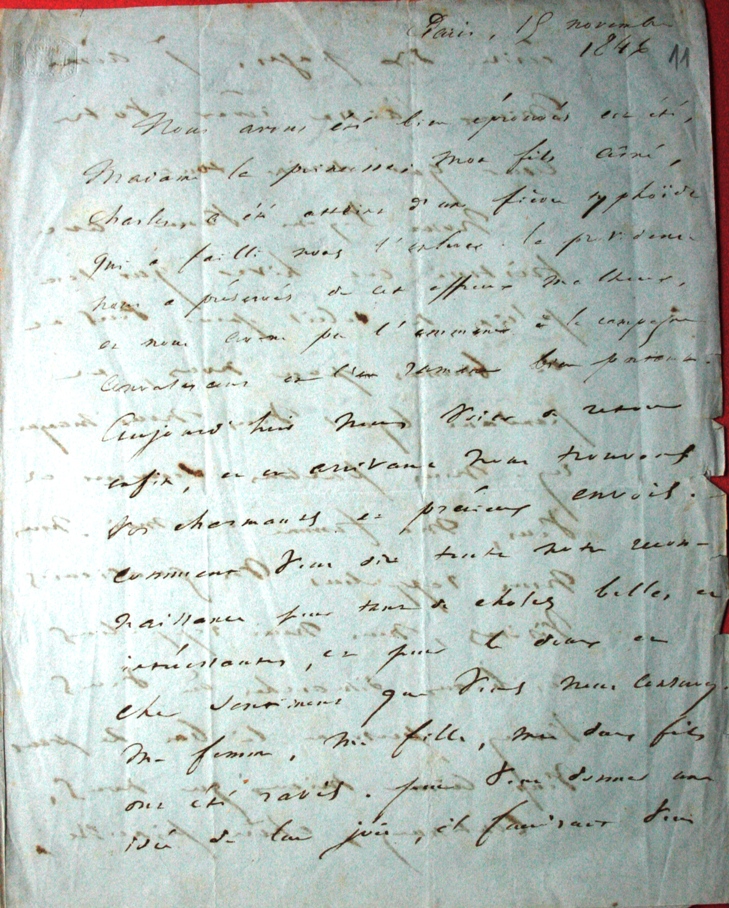 Paris, 15 novembre
1846
11
Nous avons été bien éprouvés cet été,
Madame la princesse, mon fils aîné,
Charles a été atteint d'une fièvre typhoïde
qui a failli nous l'enlever. la providence
nous a préservés de cet affreux malheur,
et nous avons pu l'emmener à la campagne
convalescent et l'en ramener bien portant.
Aujourd'hui nous voici de retour
enfin, et en arrivant nous trouvons
vos charmants et précieux envois.
comment vous dire toute notre recon-
naissance pour tant de choses belles et
intéressantes, et pour le doux et
cher souvenir que vous nous conservez.
Ma femme, ma fille, mes deux fils
ont été ravis. pour vous donner une
idée de leur joie, il faudrait vous